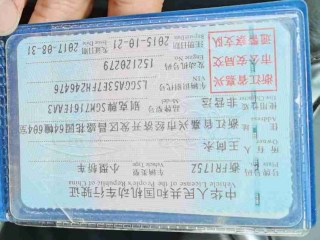 中华人民共和国机动车行驶证
Vehicle License of the People's Republic of China
号牌号码 浙FR1752 车辆类型 小型轿车
Plate No. Vehicle Type
所有人 王向永
Owner
住址 浙江省嘉兴市经济开发区昌盛花园
Address
使用性质 非营运 品牌型号 别克牌SGM7161EAA3
Model
浙江省嘉
兴市公安局交
通警察支队
车辆识别代号
VIN
发动机号码 152120279
Engine No.
注册日期 2015-10-21 发证日期 2017-08-31
Register Date Issue Date